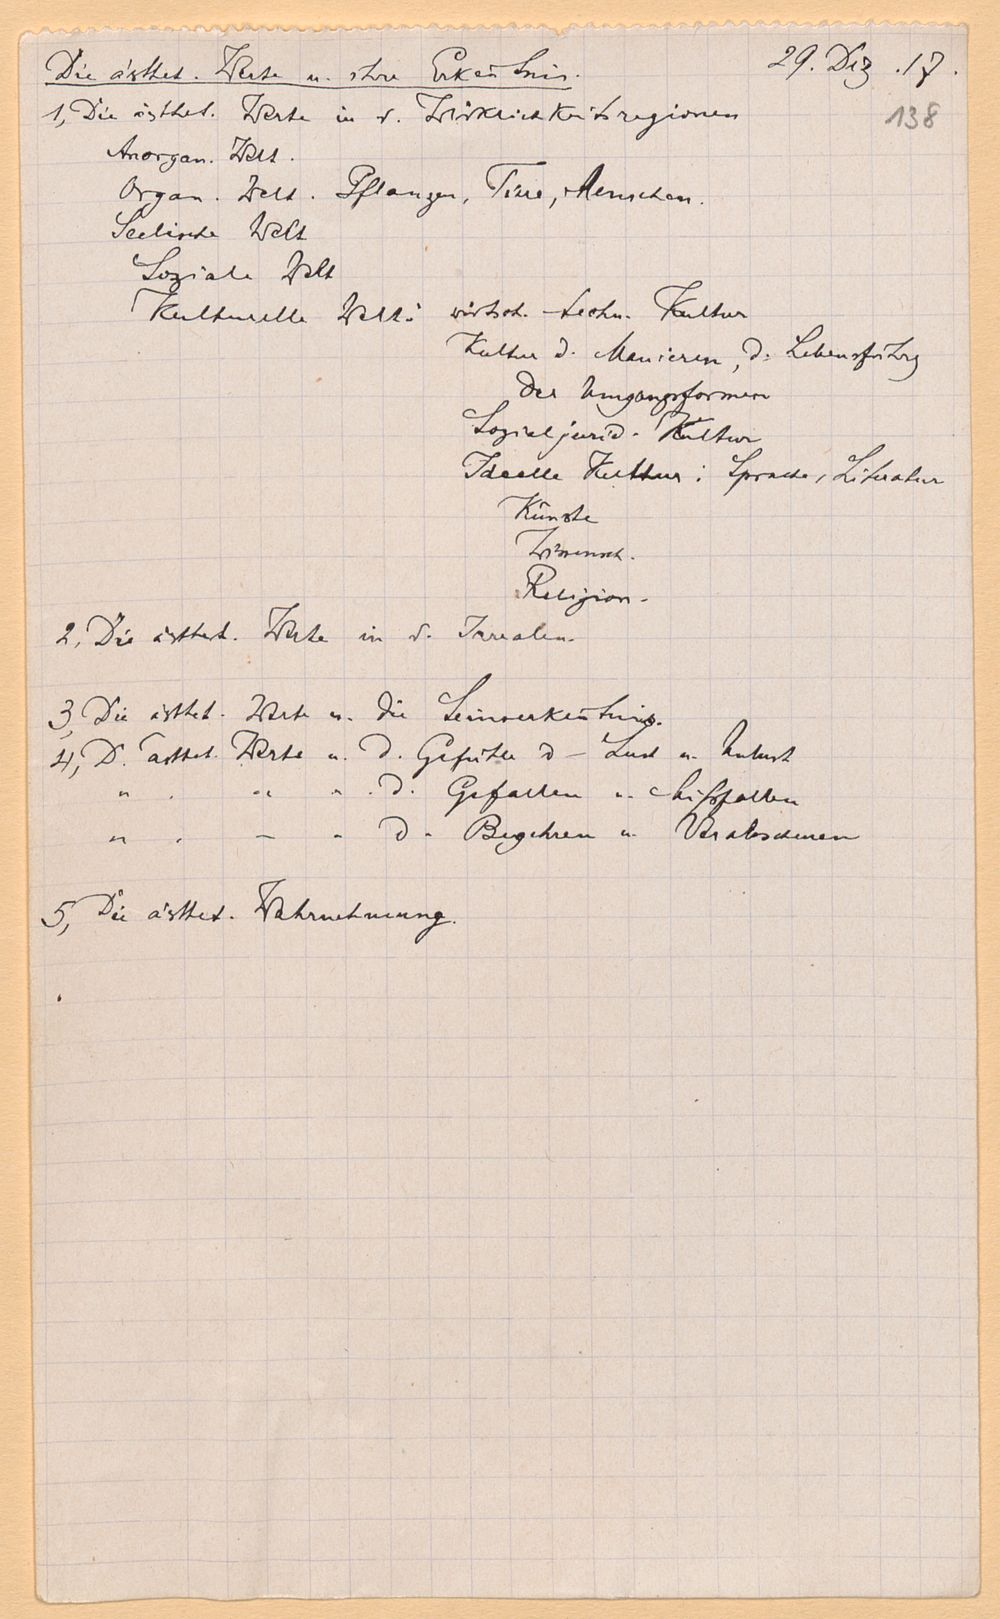 29. Dez. 17.
138
Die ästhet. Werte u. ihre Erkenntnis.
1, Die ästhet. Werte in d. Wirklichkeitsregionen
Anorgan. Welt.
Organ. Welt. Pflanzen, Tiere, Menschen.
Seelische Welt
Soziale Welt
Kulturelle Welt: wirtsch. techn. Kultur
Kultur d. Manieren, d. Lebensführg
der Umgangsformen
Sozialjurid. Kultur
Ideelle Kultur: Sprache, Literatur
Künste
Wissensch.
Religion.
2, Die ästhet. Werte in d. Irrealen.
3, Die ästhet. Werte u. die Seinserkenntnis.
4, D. ästhet. Werte u. d. Gefühle d - Lust u. Unlust
" . " " . d. Gefallen u. Mißfallen
" . - " d. Begehren u. Verabscheuen
5, Die ästhet. Wahrnehmung.